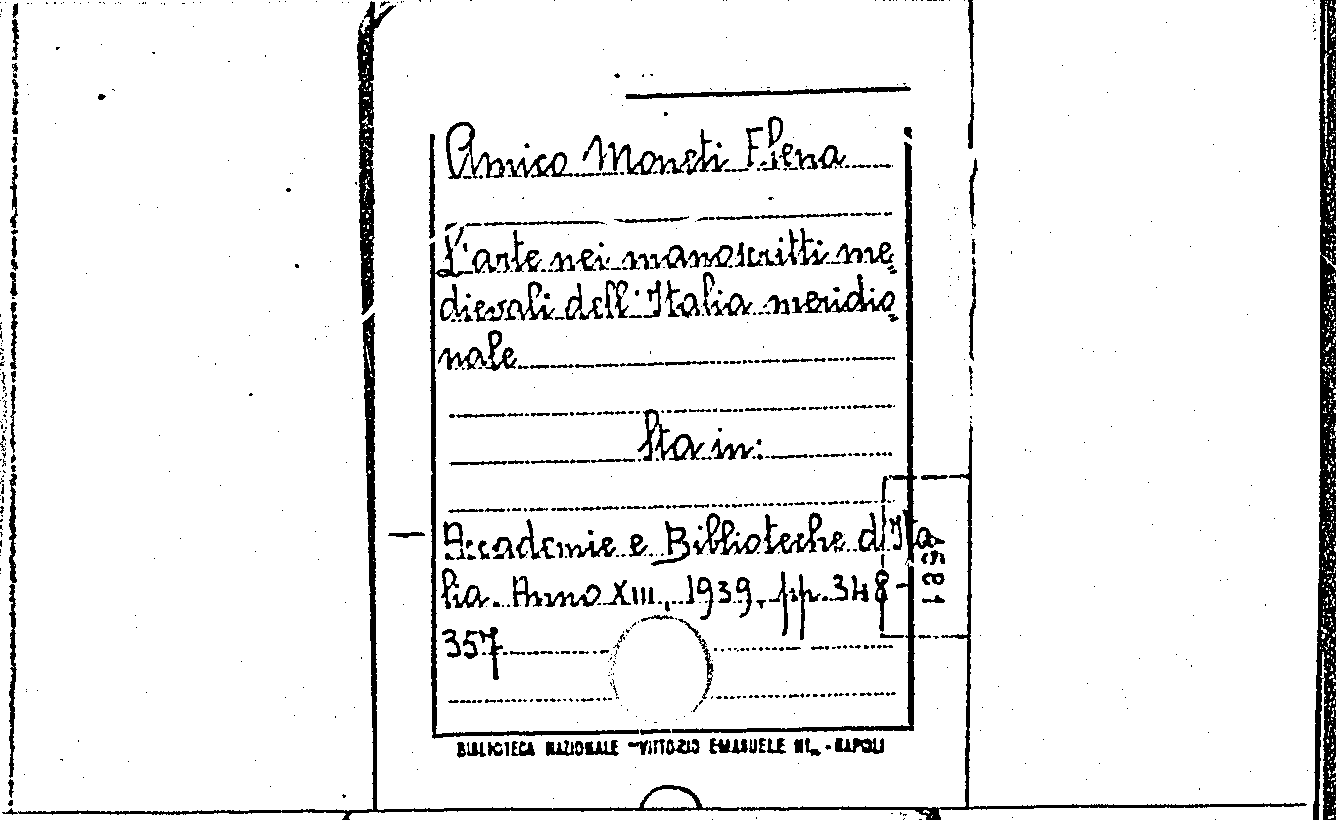 Amico Moneti Elena
L'arte nei manoscritti me=
dievali dell'Italia meridio=
nale
Sta in:
Accademie e Biblioteche d'Ita
lia. Anno XIII, 1939, pp. 348-
357
BIBLIOTECA NAZIONALE "VITTORIO EMANUELE III„ - NAPOLI